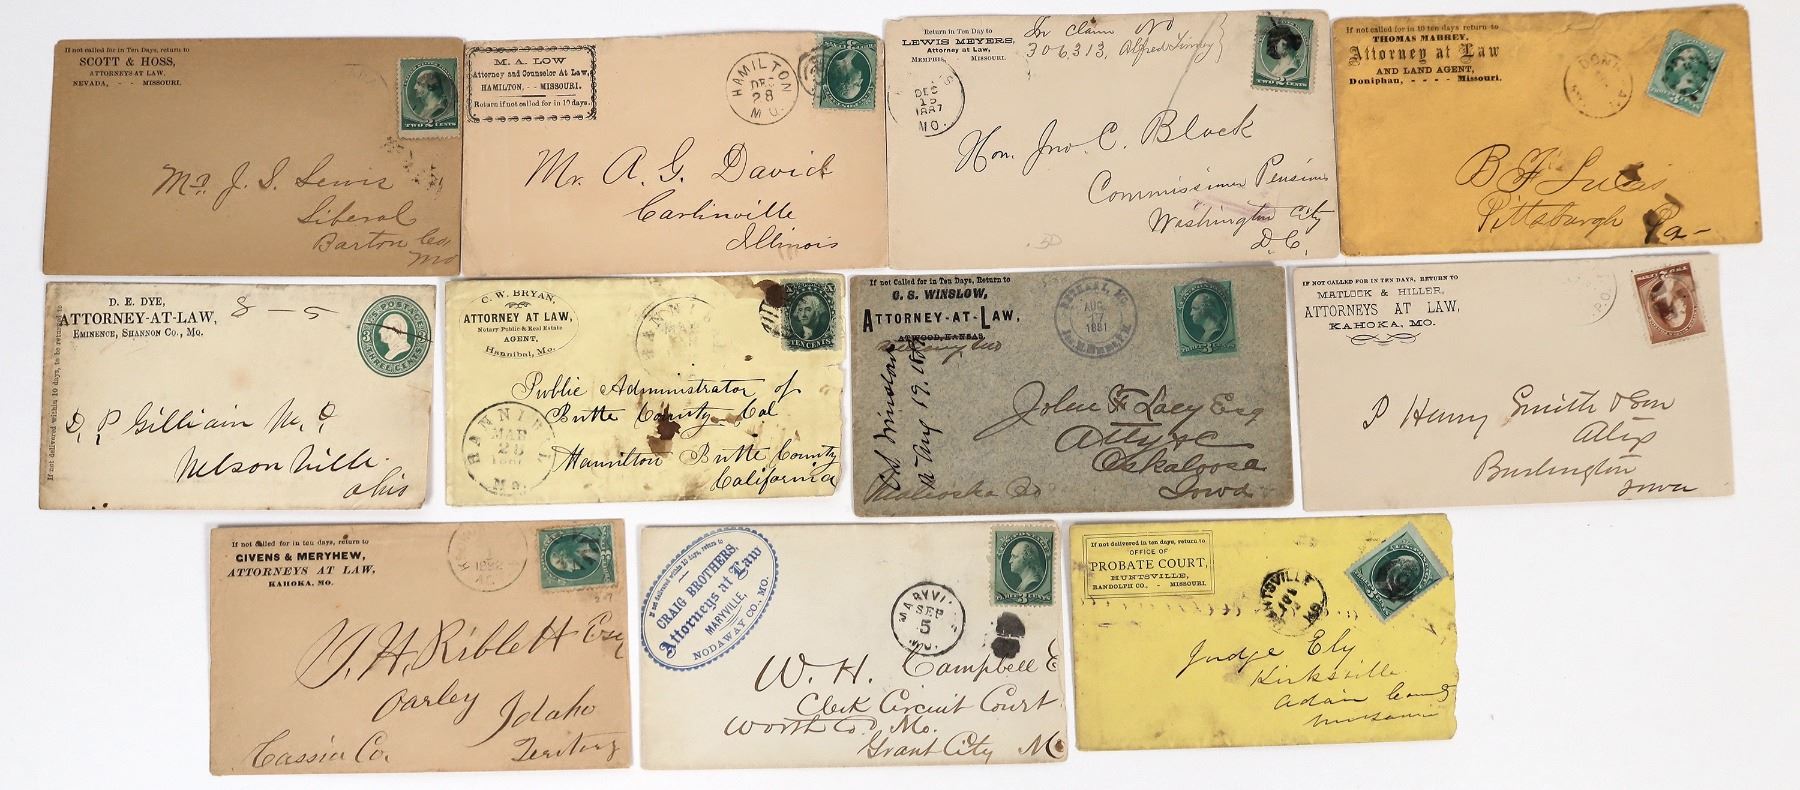 If not called for in Ten Days, return to
SCOTT & HOSS,
ATTORNEYS AT LAW,
NEVADA, - - MISSOURI.
TWO 2 CENTS
J. S. Lewis
Liberal
Barton Co.
Mo
M. A. LOW
Attorney and Counselor At Law,
HAMILTON, - - MISSOURI.
Return if not called for in 10 days.
HAMILTON
DEC
28
MO.
Mr. A. G. David
Carlinville
Illinois
Return in Ten Day to
LEWIS MEYERS,
Attorney at Law,
MEMPHIS, MISSOURI.
In claim No
306313, Alfred
DEC
15
1887
MO.
TWO 2 CENTS
Hon. Jno. C. Black
Commissioner Pensions
Washington City
D.C.
If not called for in 10 ten days return to
THOMAS MABREY,
Attorney at Law
AND LAND AGENT,
Doniphan, - - - - Missouri.
B F Lucas
Pittsburgh
Pa-
If not delivered within 10 days, to be returned to
D. E. DYE,
ATTORNEY-AT-LAW,
EMINENCE, SHANNON CO., MO.
8 - 5
U.S. POSTAGE
THREE CENTS
D. P. Gilliain M.D.
Nelsonville
Ohio
C. W. BRYAN,
ATTORNEY AT LAW,
Notary Public & Real Estate
AGENT,
Hannibal, Mo.
TEN CENTS
HANNIBAL
MAR
28
Mo.
Public Administrator of
Butte County Cal
Hamilton Butte County
California
If not Called for in Ten Days, Return to
C. S. WINSLOW,
ATTORNEY-AT-LAW,
ATWOOD, KANSAS
Bethany Mo
BETHANY, MO.
AUG
17
1881
C S Winslow
THREE 3 CENTS
John F Lacy Esq
Atty &c
Oskaloosa
Iowa
Mahaska Co
IF NOT CALLED FOR IN TEN DAYS, RETURN TO
MATLOCK & HILLER,
ATTORNEYS AT LAW,
KAHOKA, MO.
Henry Smith & Son
Attys
Burlington
Iowa
If not called for in ten days, return to
GIVENS & MERYHEW,
ATTORNEYS AT LAW,
KAHOKA, MO.
H. Riblett Esq
Oarley Idaho
Cassia Co. Territory
If not delivered within 10 days, return to
CRAIG BROTHERS,
Attorneys at Law
MARYVILLE,
NODAWAY CO., MO.
MARYVILLE
SEP
5
MO.
THREE 3 CENTS
W. H. Campbell E
Clerk Circuit Court
Worth Co. Mo.
Grant City Mo
If not delivered in ten days, return to
OFFICE OF
PROBATE COURT,
HUNTSVILLE,
RANDOLPH CO., - MISSOURI.
HUNTSVILLE
Judge Ely
Kirksville
Adair County
Missouri